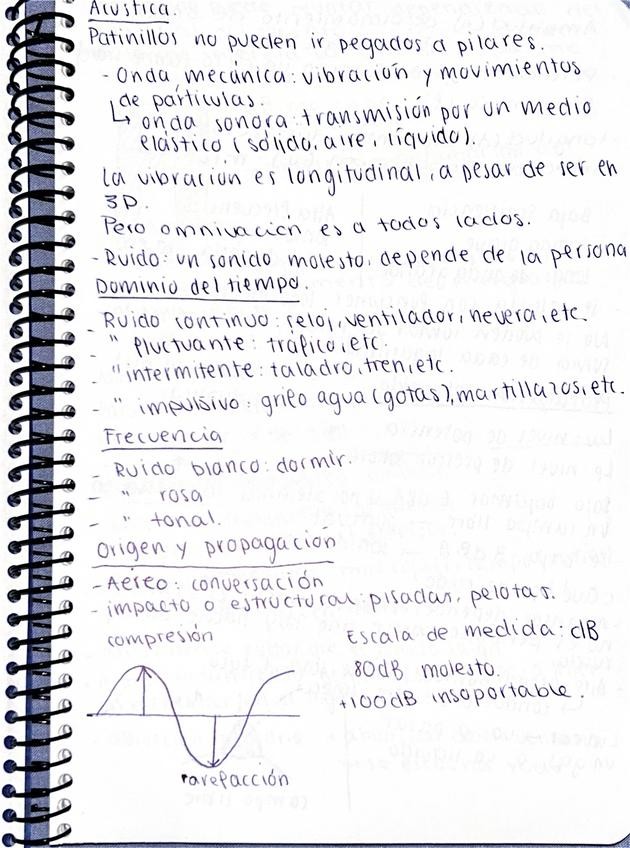 Acústica.
Patinillos no pueden ir pegados a pilares.
- Onda mecánica: vibración y movimientos
de partículas.
↳ onda sonora: transmisión por un medio
elástico (sólido, aire, líquido).
La vibración es longitudinal, a pesar de ser en
3D.
Pero omnivación es a todos lados.
- Ruido: un sonido molesto, depende de la persona
Dominio del tiempo.
- Ruido continuo: reloj, ventilador, nevera, etc.
- " fluctuante: tráfico, etc.
- " intermitente: taladro, tren, etc.
- " impulsivo: grifo agua (gotas), martillazos, etc.
Frecuencia
- Ruido blanco: dormir.
- " rosa
- " tonal.
Origen y propagación
- Aéreo: conversación
- impacto o estructural: pisadas, pelotas.
compresión
Escala de medida: dB
80dB molesto.
+100dB insoportable.
rarefacción